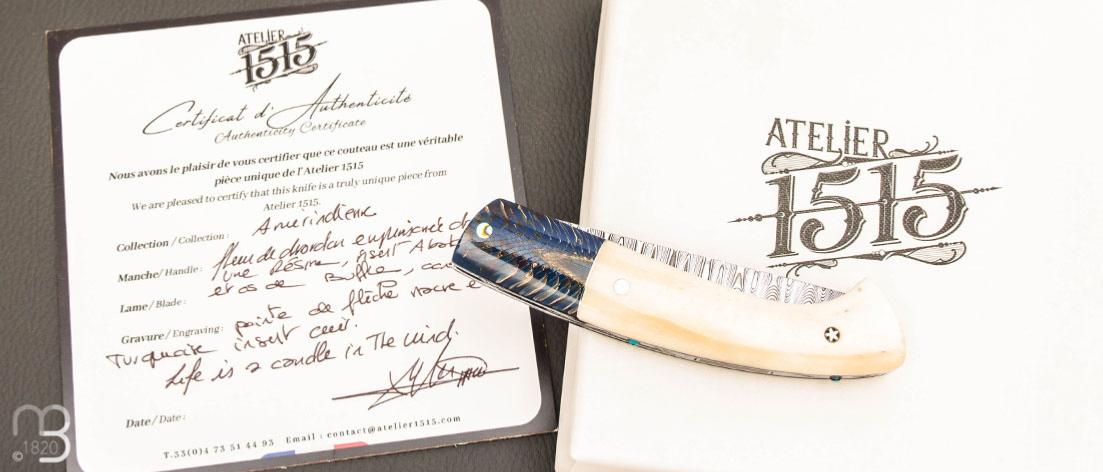 ATELIER
1515
Certificat d'Authenticité
Authenticity Certificate
Nous avons le plaisir de vous certifier que ce couteau est une véritable
pièce unique de l'Atelier 1515
We are pleased to certify that this knife is a truly unique piece from
Atelier 1515.
Collection / Collection : Amerindienne
Manche / Handle : fleur de chardon emprisonné d
une Résine, insert Abal
et os de Buffle,
Lame / Blade :
Gravure / Engraving : pointe de flèche nacre e
Turquoise insert cuir.
Life is a candle in The wind.
Date / Date :
T.33(0)4 73 51 44 93 Email : contact@atelier1515.com
ATELIER
1515
©1820